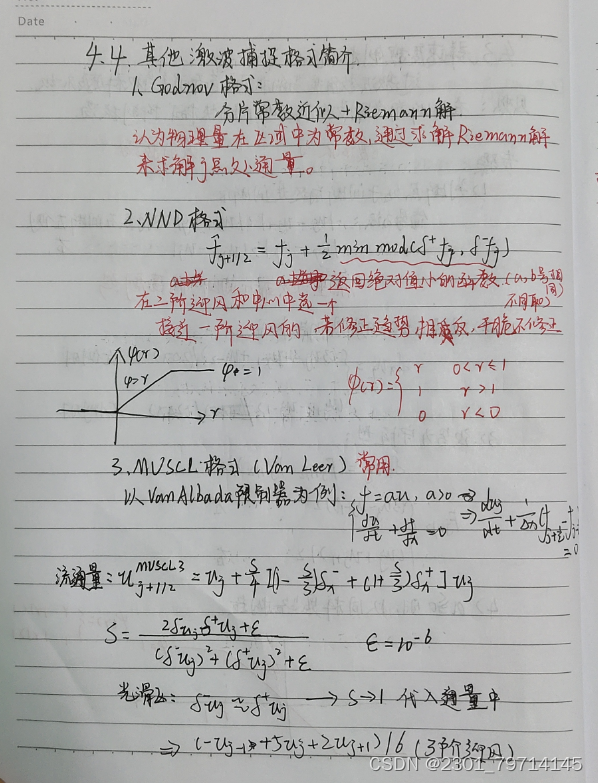 Date
4.4. 其他激波捕捉格式简介
1. Godnov 格式:
分片常数近似 + Riemann解
认为物理量在区域中为常数,通过求解Riemann解
来求解j点处通量。
2. NND 格式
f_{j+1/2} = f_j + 1/2 min mod(δ⁺f_j, δ⁻f_j)
返回绝对值小的函数 (a,b号相同 不同取0)
在二阶迎风和中心中选一个
接近一阶迎风的 若修正趋势相反,干脆不修正
φ(r)
φ=r
φ=1
r
φ(r) = { r 0<r≤1
1 r>1
0 r<0
3. MUSCL格式 (Van Leer) 常用.
以VanAlbada限制器为例: f=au, a>0 ⇒
{ du/dt + df/dx = 0 ⇒ du_j/dt + 1/Δx (f_{j+1/2} - f_{j-
= 0
流通量: u_{j+1/2}^{MUSCL3} = u_j + S/4 [(1 - S/3)δ_x^- + (1 + S/3)δ_x^+] u_j
S = (2δ⁻u_j δ⁺u_j + ε) / ((δ⁻u_j)² + (δ⁺u_j)² + ε) ε = 10⁻⁶
光滑区: δ⁻u_j ≈ δ⁺u_j → S→1 代入通量中
⇒ (-u_{j-1} + 5u_j + 2u_{j+1})/6 (3阶迎风)
CSDN @2301_79714145